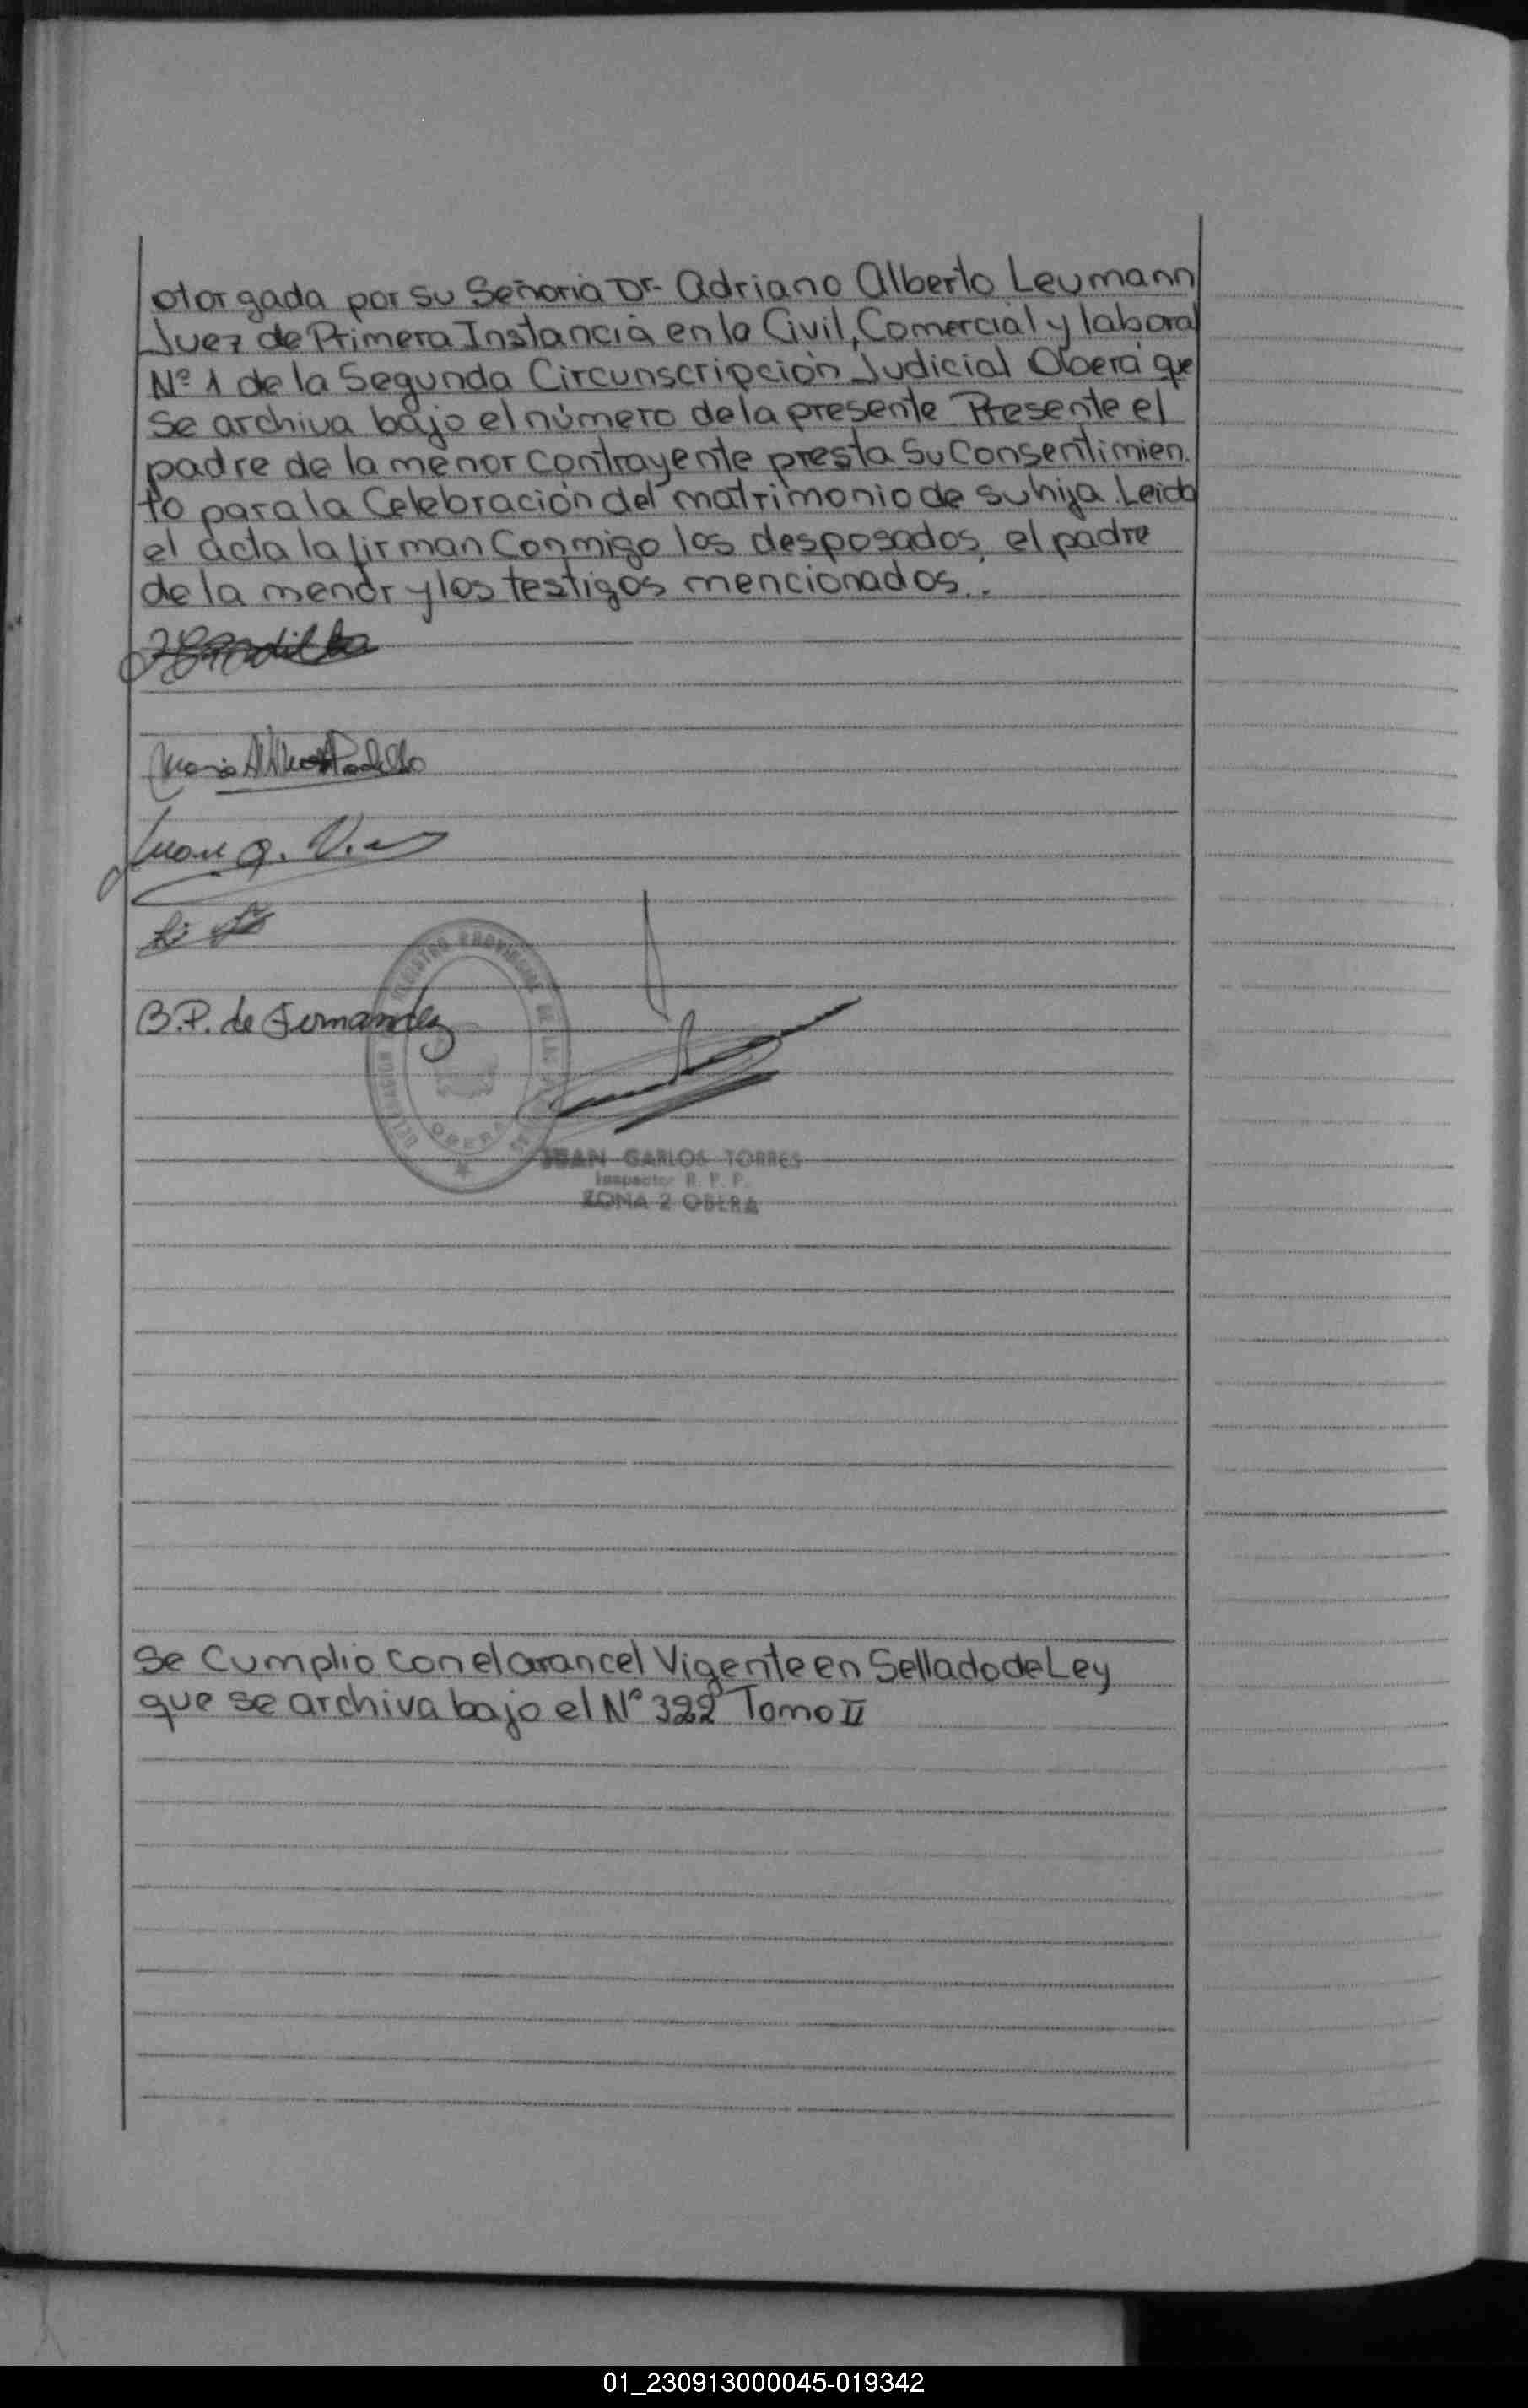 otorgada por su Señoria Dr. Adriano Alberto Leumann
Juez de Primera Instancia en lo Civil, Comercial y laboral
Nº 1 de la Segunda Circunscripción Judicial Oberá que
se archiva bajo el número de la presente Presente el
padre de la menor contrayente presta su Consentimien.
to para la Celebración del matrimonio de su hija. Leida
el acta la firman Conmigo los desposados, el padre
de la menor y los testigos mencionados..
Padilla
B.P. de Fernandez
REGISTRO PROVINCIAL DE LAS
OBERA
JUAN CARLOS TORRES
Inspector R. P. P.
ZONA 2 OBERA
Se Cumplio con el arancel Vigente en Sellado de Ley
que se archiva bajo el Nº 322 Tomo II
01_230913000045-019342